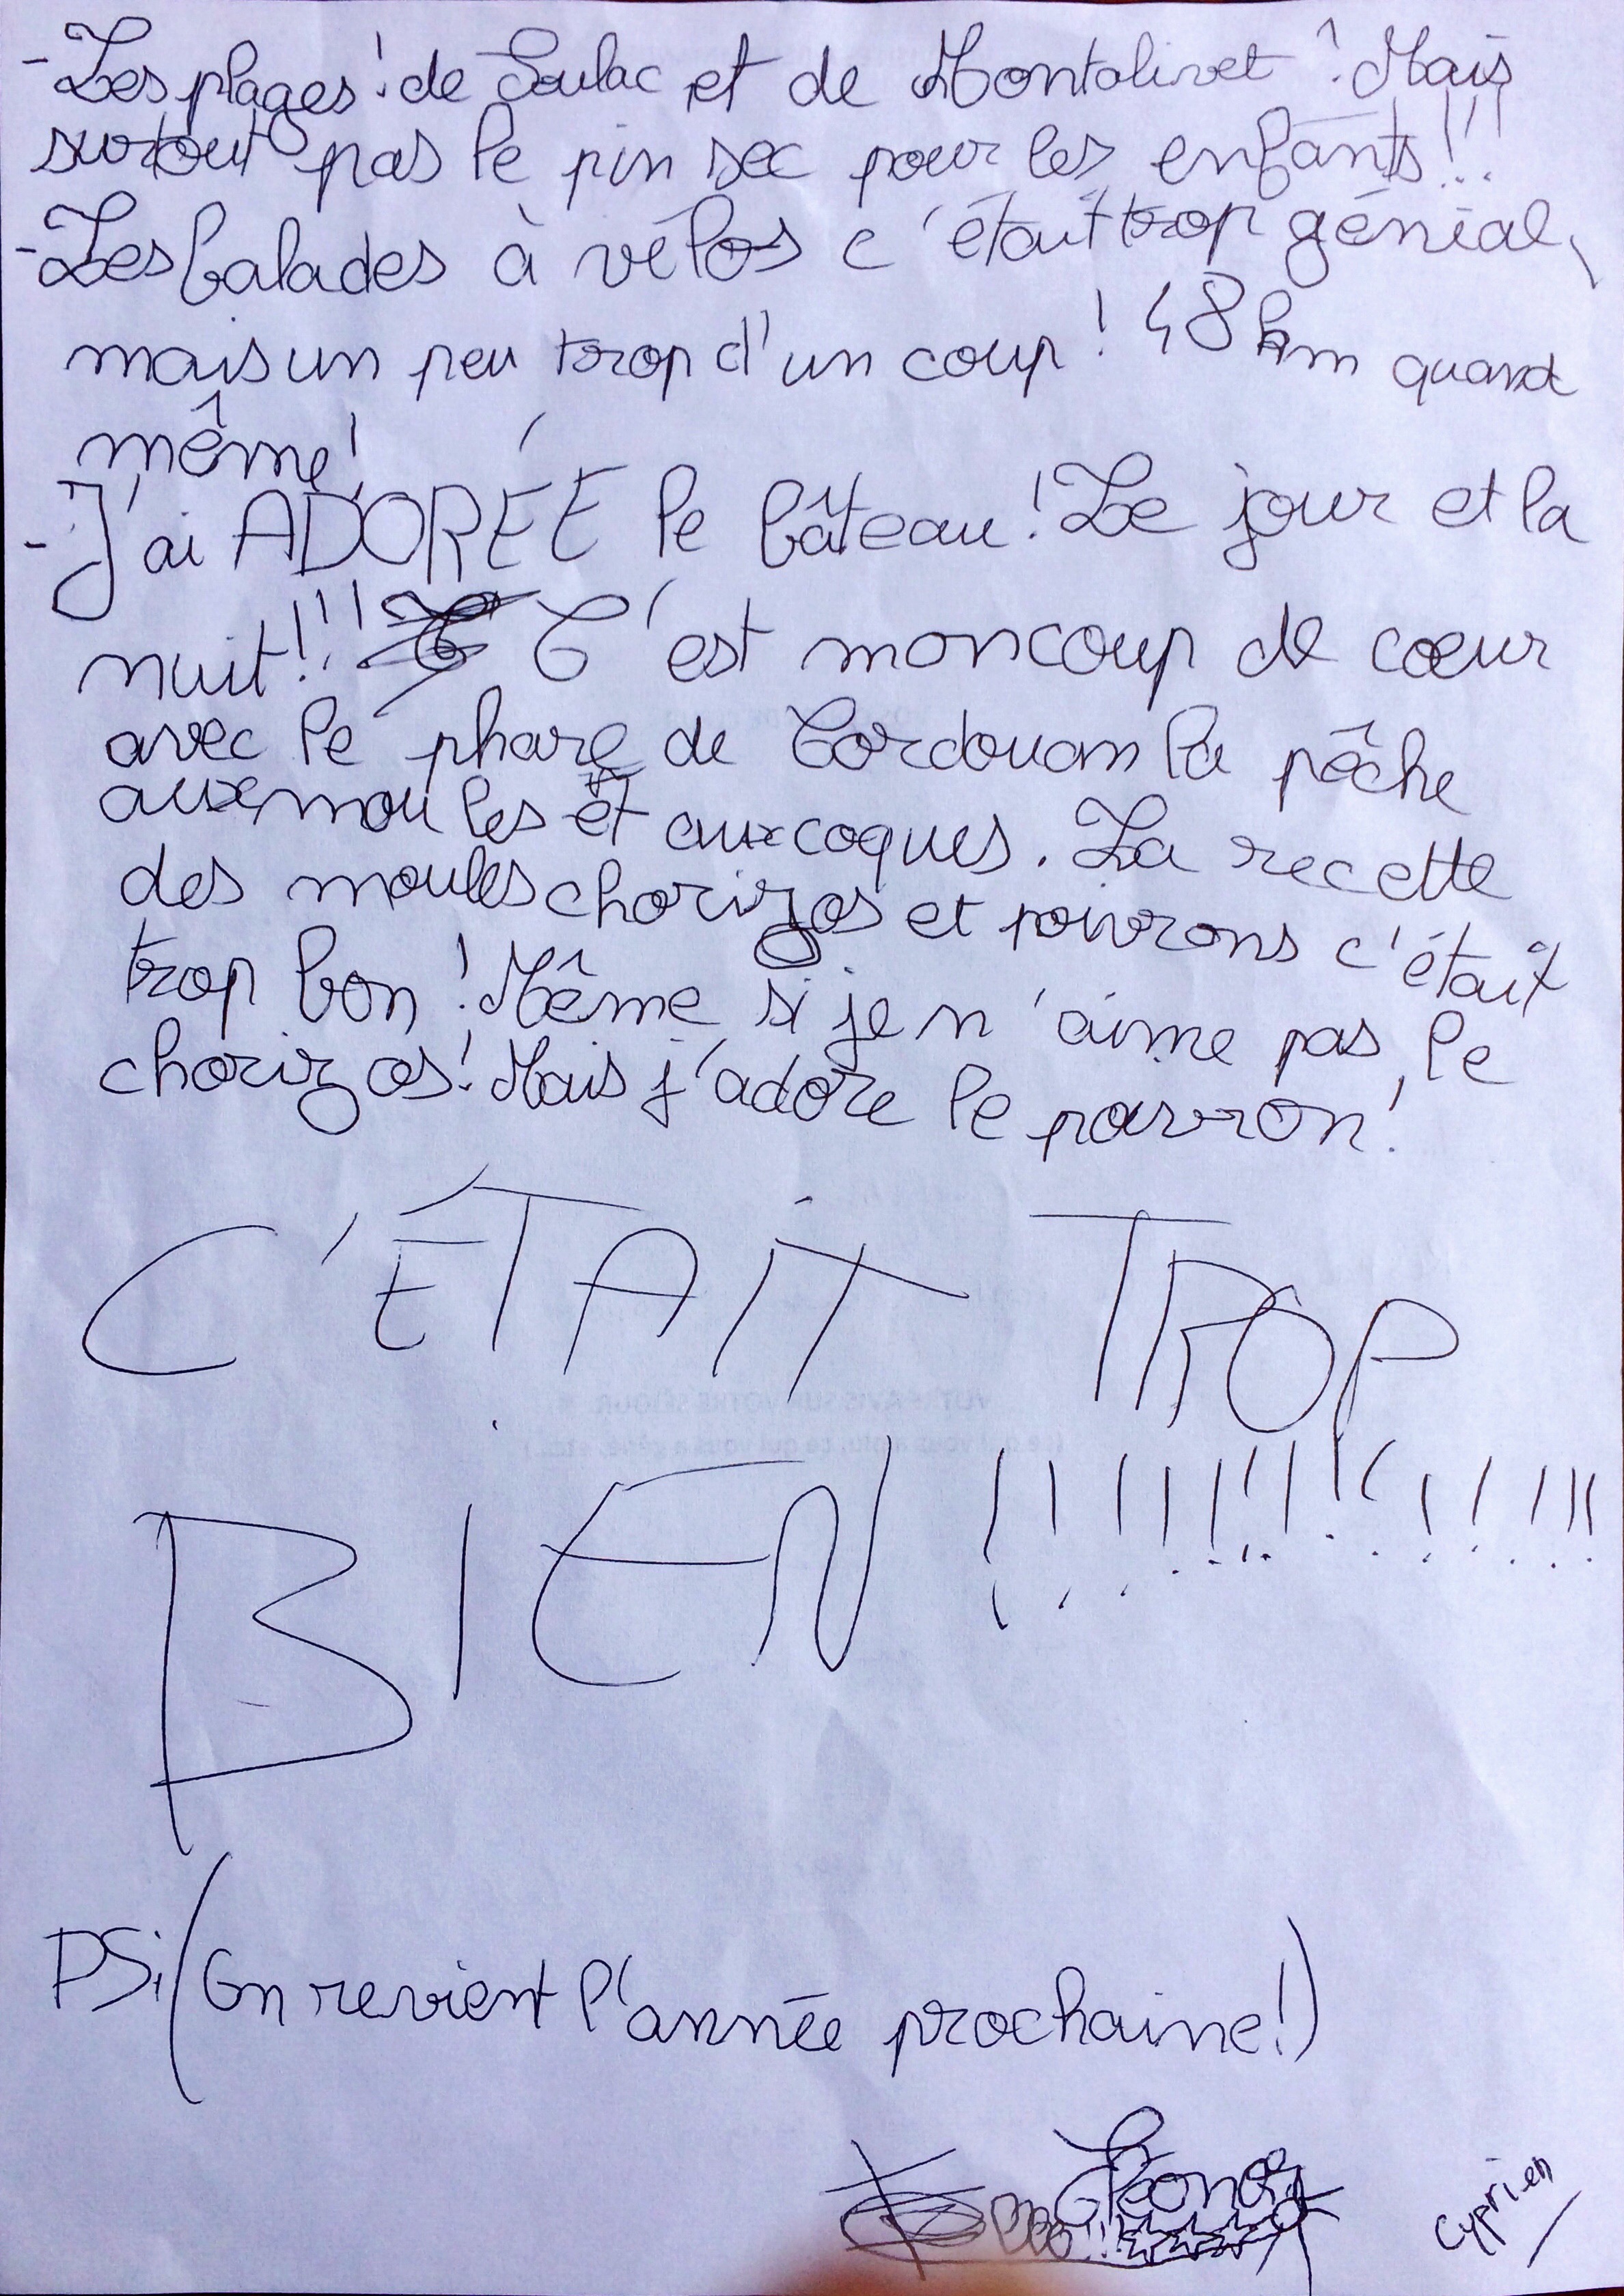 - Les plages! de Soulac et de Montalivet! Mais
surtout pas le pin sec pour les enfants!!!
- Les balades à vélos c'était trop génial,
mais un peu trop d'un coup! 48 km quand
même!
- J'ai ADORÉE le bâteau! Le jour et la
nuit!!! C'est mon coup de cœur
avec le phare de Cordouan la pêche
aux moules et aux coques. La recette
des moules chorizos et poivrons c'était
trop bon! Même si je n'aime pas le
chorizos! Mais j'adore le poivron!
C'ÉTAIT TROP
BIEN !!!!!!!!!!!!!!!
PS: (On revient l'année prochaine!)
Cyprien